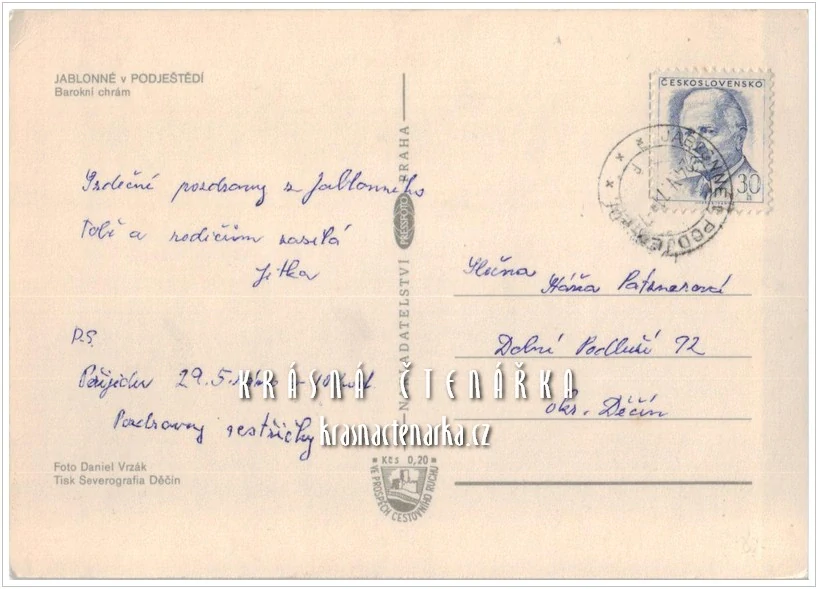 JABLONNÉ v PODJEŠTĚDÍ
Barokní chrám
ČESKOSLOVENSKO
30
h
JABLONNÉ v PODJEŠTĚDÍ
Srdečné pozdravy z Jablonného
Tobě a rodičům zasílá
Jitka
P.S.
Přijedu 29.5.
Pozdravuj sestřičky
Slečna
Dolní Podluží 72
okr. Děčín
NAKLADATELSTVÍ PRESSFOTO PRAHA
KRÁSNÁ ČTENÁŘKA
krasnactenarka.cz
Kčs 0,20
VE PROSPĚCH CESTOVNÍHO RUCHU
Foto Daniel Vrzák
Tisk Severografia Děčín